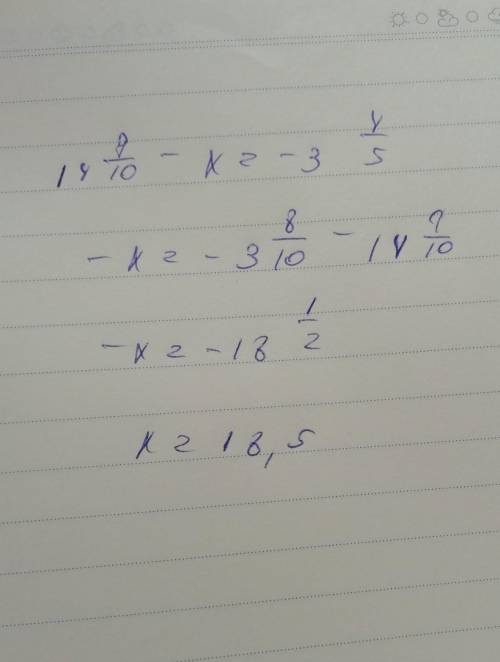 14 7/10 - x = -3 4/5
-x = -3 8/10 - 14 7/10
-x = -18 1/2
x = 18,5